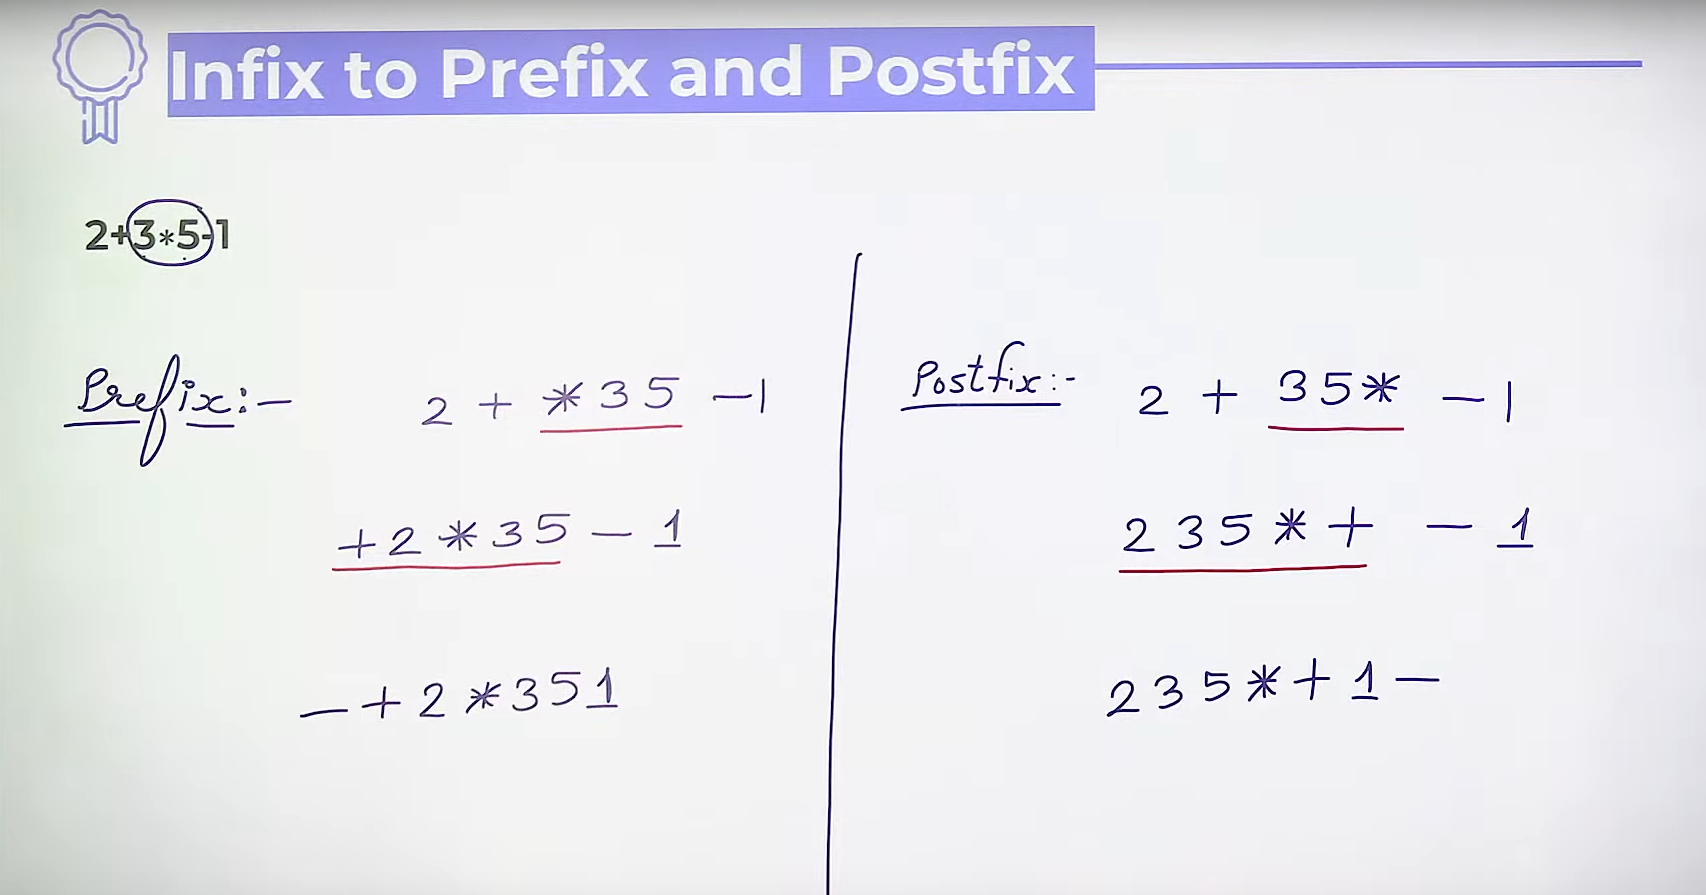 Infix to Prefix and Postfix
2+3*5-1
Prefix:-
2 + *35 -1
+2*35 - 1
-+2*351
Postfix:-
2 + 35* -1
235*+ - 1
235*+1-